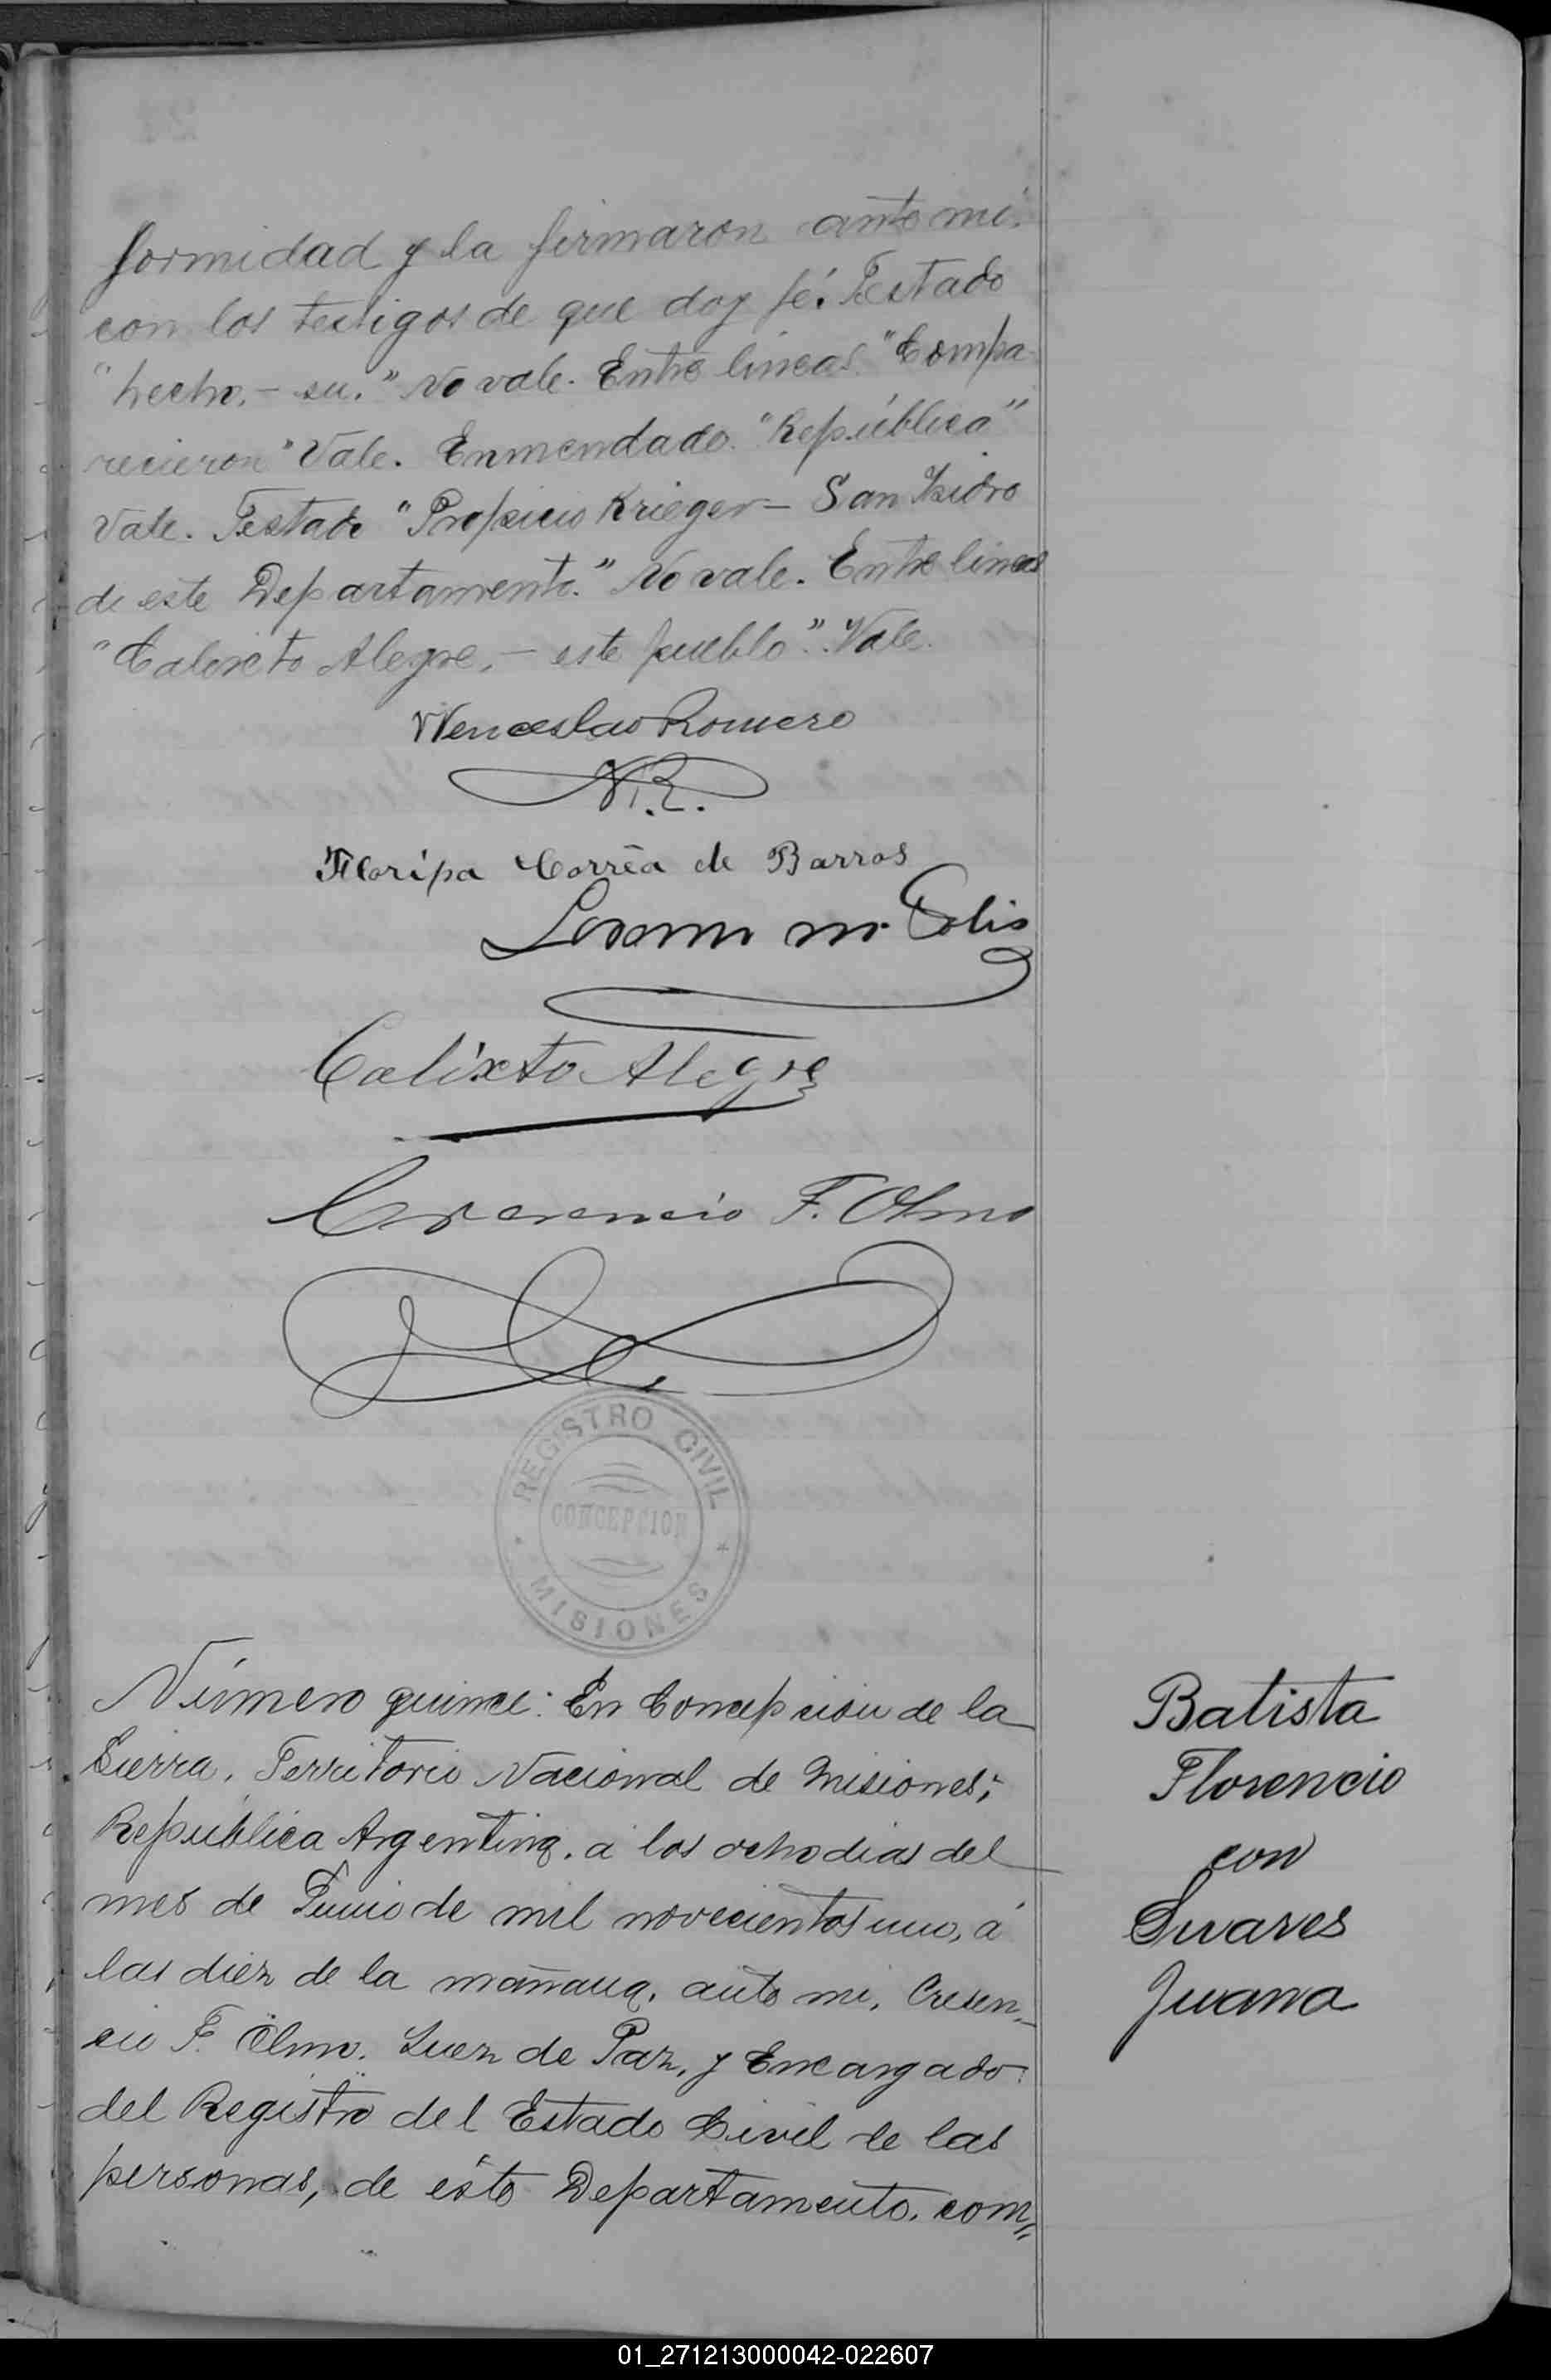 formidad y la firmaron ante mi.
con los testigos de que doy fé. Testado
"hecho. - su." No vale. Entre lineas. "Compa-
recieron" Vale. Enmendado. "República"
Vale. Testado "Propicio Krieger - San Isidro
de este Departamento." No vale. Entre lineas
"Calixto Alegre. - este pueblo". Vale.
Wenceslao Romero
Floripa Corrêa de Barros
Calixto Alegre
Cresencio F. Olmo
REGISTRO CIVIL
CONCEPCION
MISIONES
Número quince: En Concepcion de la
Sierra, Territorio Nacional de Misiones,
República Argentina, a los ocho dias del
mes de Junio de mil novecientos uno, á
las diez de la mañana, ante mi, Cresen-
cio F. Olmo, Juez de Paz, y Encargado
del Registro del Estado Civil de las
personas, de este Departamento, com=
Batista
Florencio
con
Suares
Juana
01_271213000042-022607